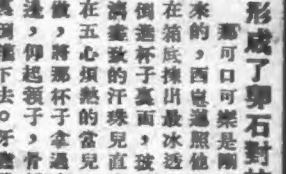 形成了卵石對
那可口可樂是剛
來的，西崽遵照他
在箱底揀出最冰透
倒進杯子裏面，玻
濟濟致的汗珠兒直
在五心煩熱的當兒
做，將那杯子拿過
邊，仰起頸子，骨
下去。牙